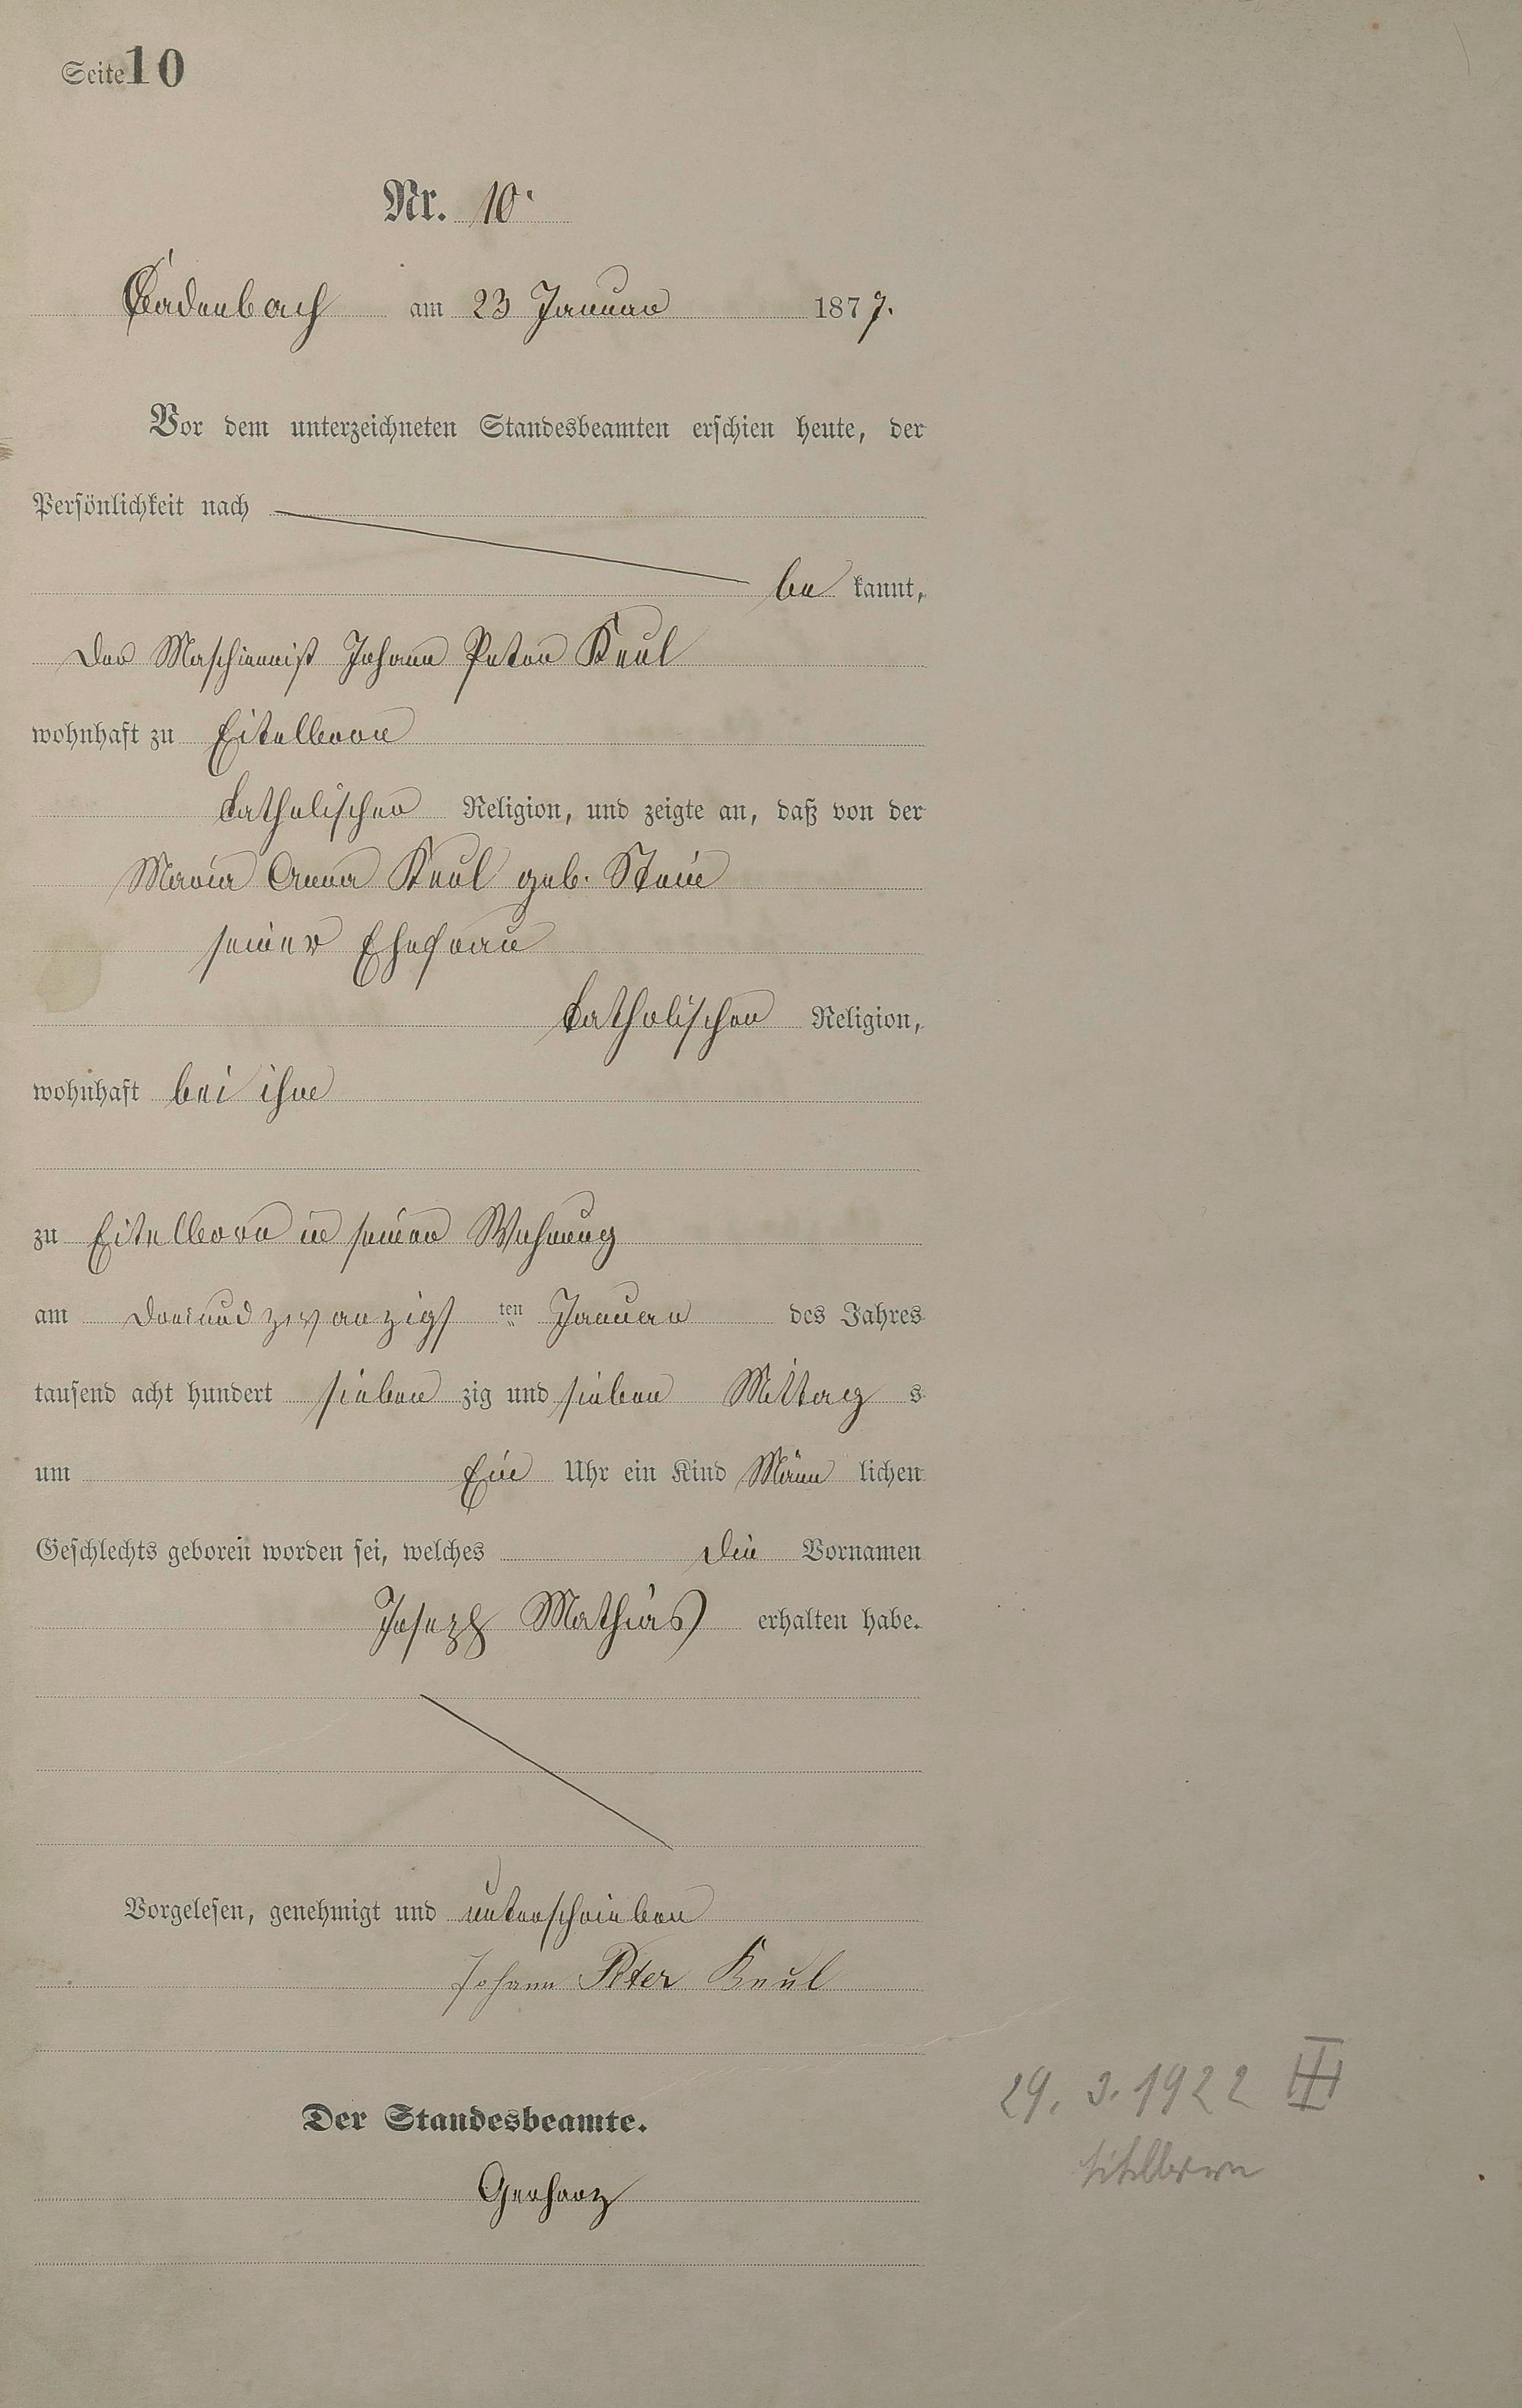 Seite 10
Nr. 10.
Cadenbach am 23 Januar 1877.
Vor dem unterzeichneten Standesbeamten erschien heute, der
Persönlichkeit nach
be kannt,
Der Maschiennist Johann Peter Keul
wohnhaft zu Eitelborn
katholischer Religion, und zeigte an, daß von der
Maria Anna Keul geb. Stein
seiner Ehefrau
katholischer Religion,
wohnhaft bei ihm
zu Eitelborn in seiner Wohnung
am Dreiundzwanzigs ten Januar des Jahres
tausend acht hundert sieben zig und sieben Mittag s
um Ein Uhr ein Kind Männ lichen
Geschlechts geboren worden sei, welches Die Vornamen
Joseph Mathias erhalten habe.
Vorgelesen, genehmigt und unterschrieben
Johann Peter Keul
Der Standesbeamte.
Gerharz
29. 3. 1922 III
Eitelborn